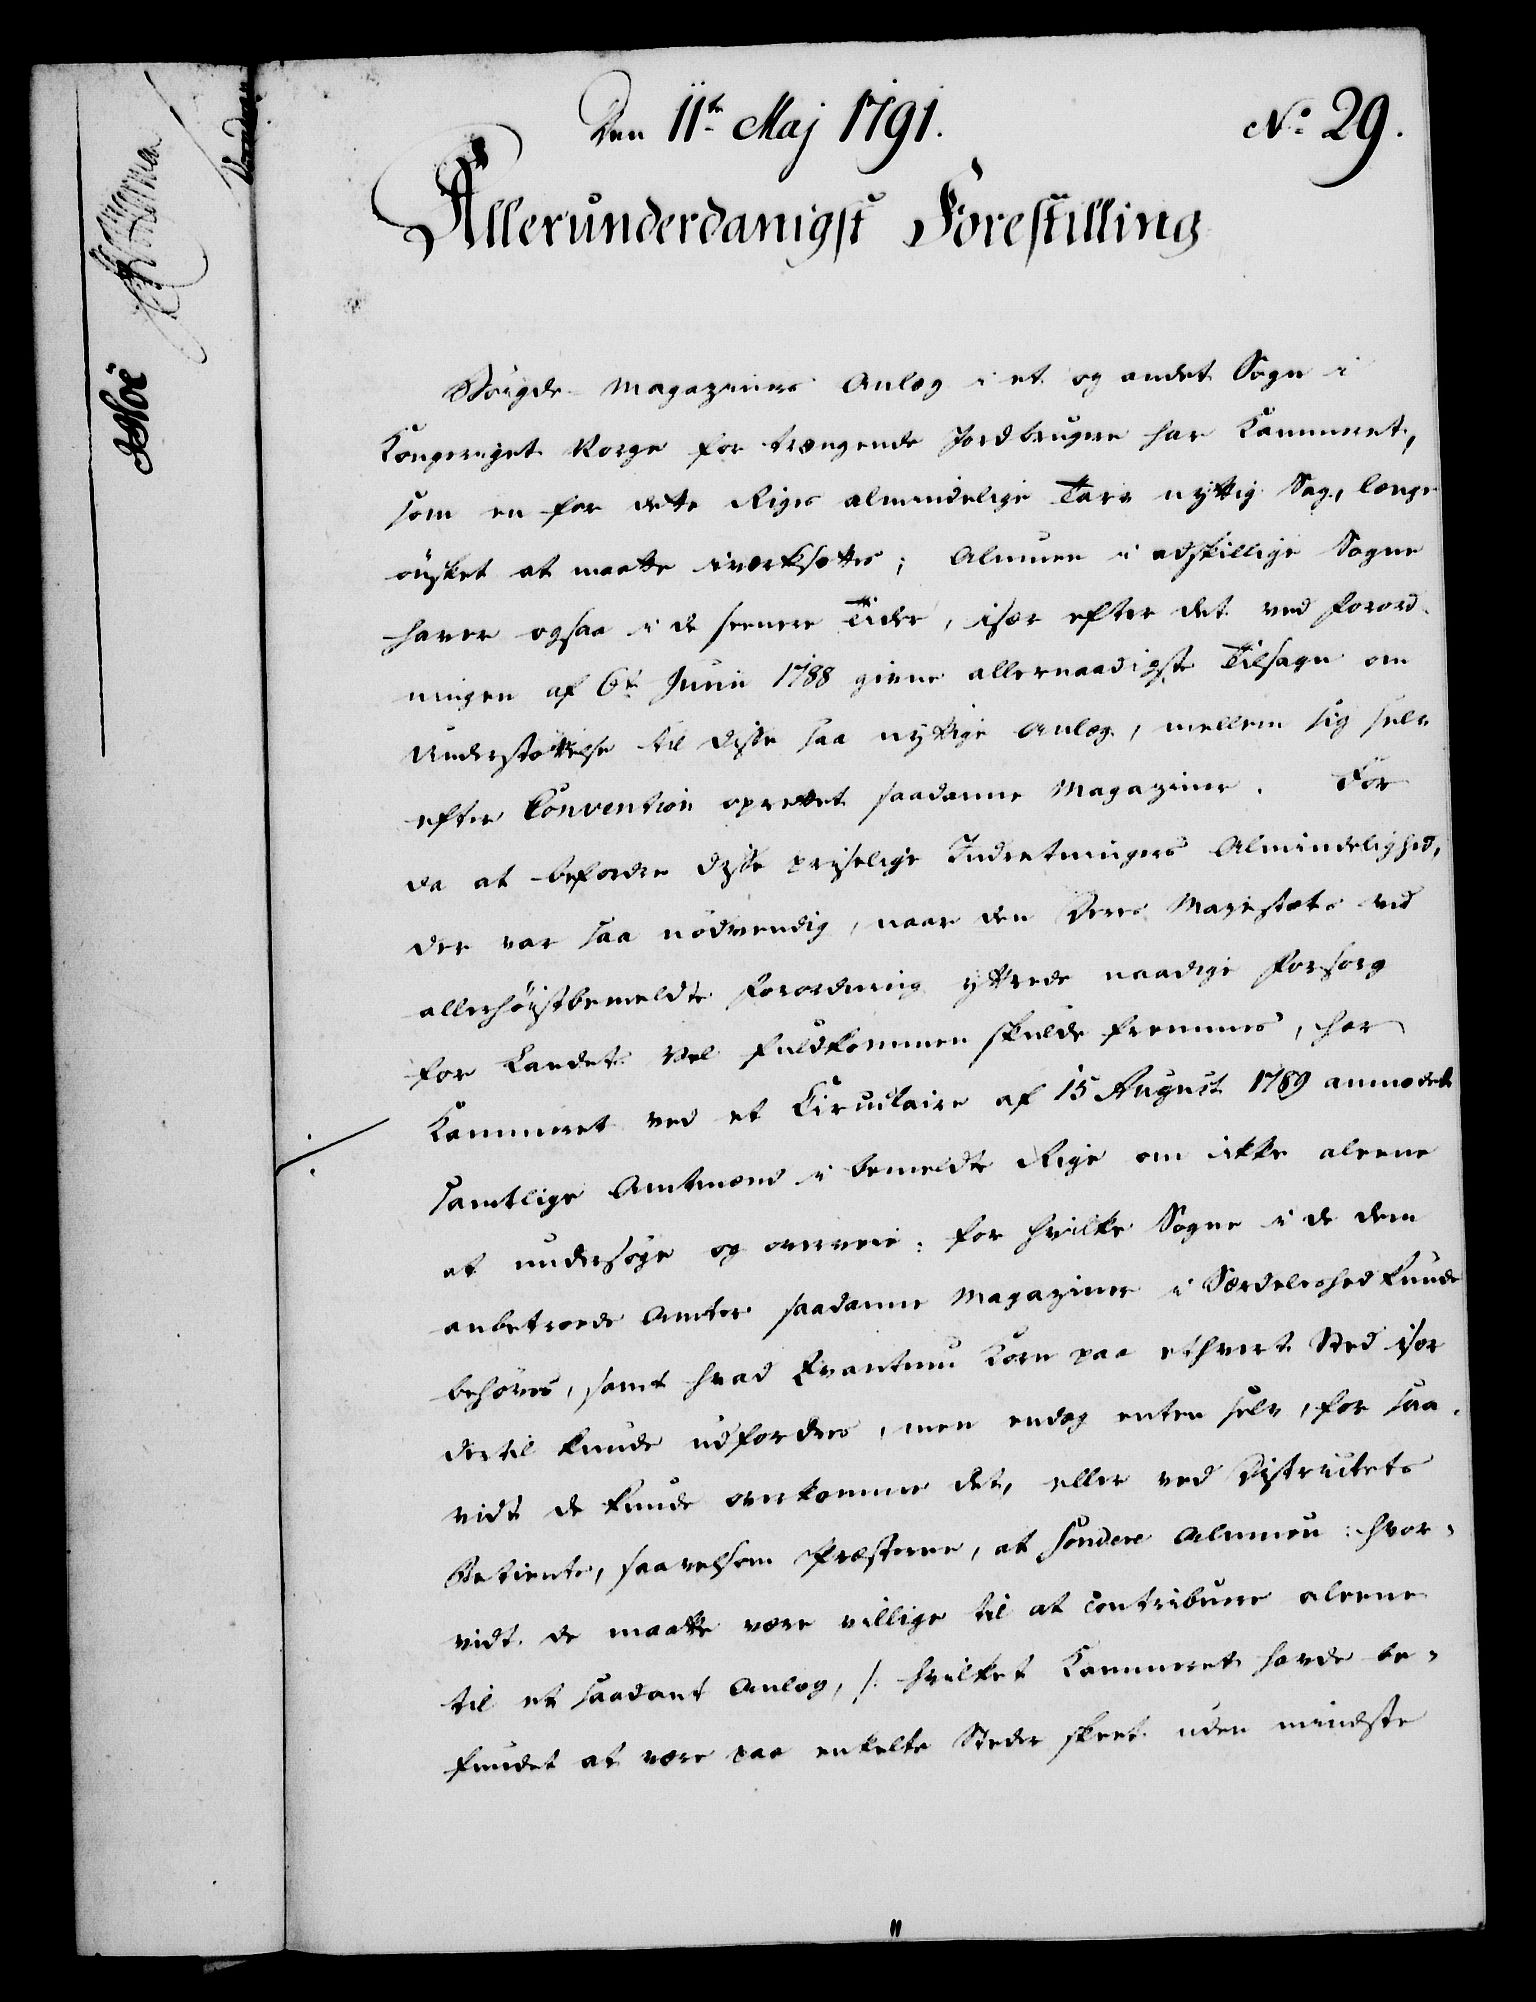 Den 11te Maj 1791.
No 29.
Allerunderdanigst Forestilling
Böigde-Magaziners Anlæg i et og andet Sogn i
Kongeriget Norge for trængende Jordbrugere har Kammeret,
som en for dette Riges almindelige Tarv nyttig Sag, længe
ønsket at maatte iværksættes; Almuen i adskillige Sogne
haver ogsaa i de seenere Tider, især efter det ved Forord-
ningen af 6te Junii 1788 givne allernaadigste Tilsagn om
Understøttelse til disse saa nyttige Anlæg, mellem sig selv
efter Convention oprettet saadanne Magaziner. For
da at befordre disse priselige Indretningers Almindelighed,
der var saa nödvendig, naar den Deres Majestæts ved
allerhöistbemeldte Forordning yttrede naadige Forsorg
for Landets Vel fuldkommen skulde fremmes, har
Kammeret ved et Circulaire af 15 August 1789 anmodet
samtlige Amtmænd i bemeldte Rige om ikke aleene
at undersöge og overveie: for hvilke Sogne i de dem
anbetroede Amter saadanne Magaziner i Særdeleshed kunde
behöves, samt hvad Qvantum Korn paa ethvert Sted især
dertil kunde udfordres, men endog enten selv, for saa-
vidt de kunde overkomme det, eller ved Districtets
Betiente, saavelsom Præsterne, at sondere Almuen: hvor-
vidt de maatte være villige til at contribuere aleene
til et saadant Anlæg, /: hvilket Kammeret havde be-
fundet at være paa enkelte Steder skeet uden mindste